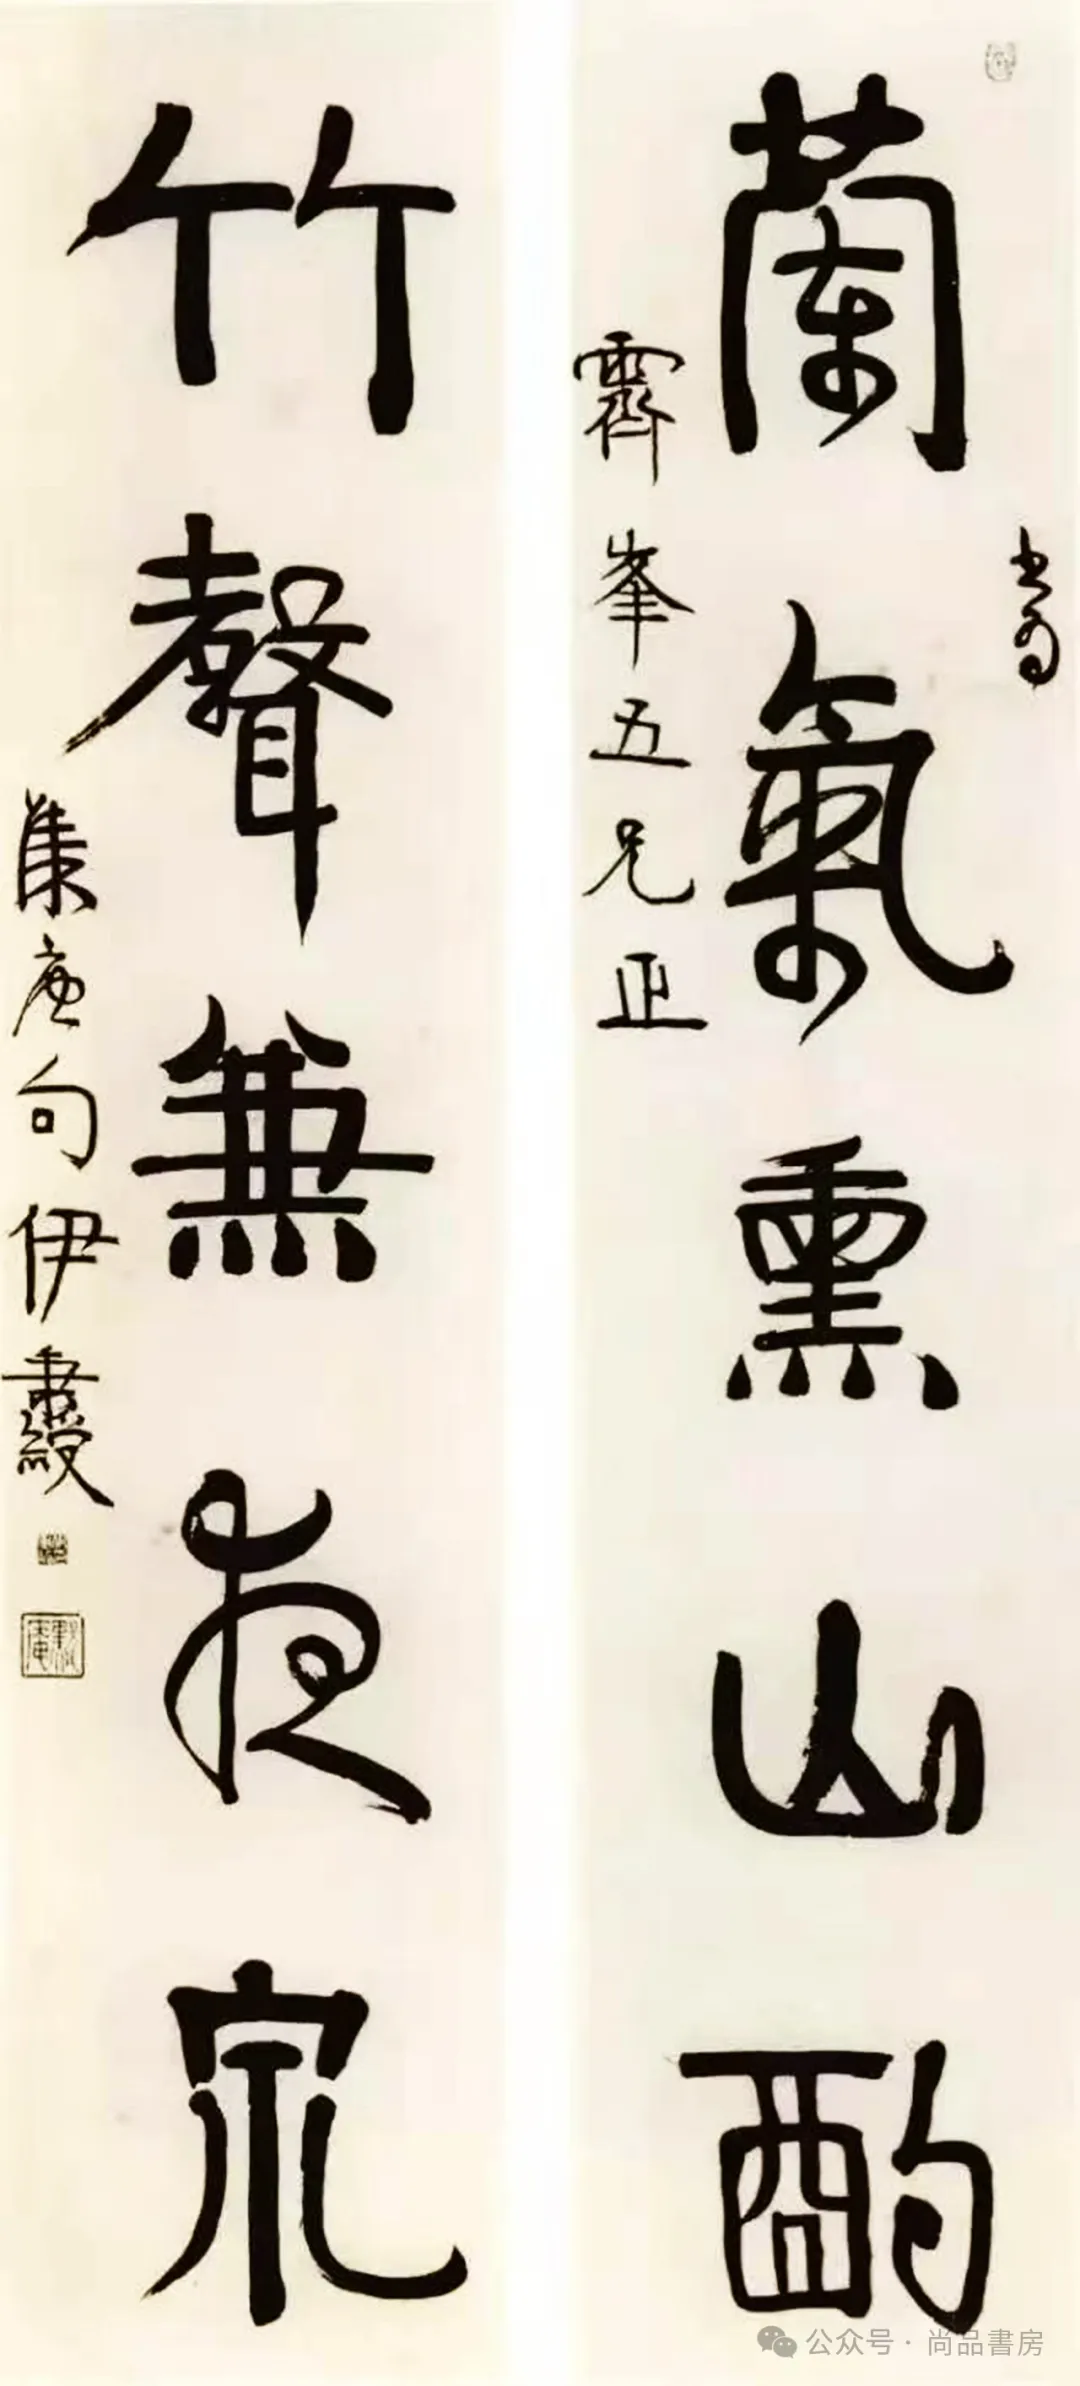 書為
蘭氣熏山酌
霽峯五兄正
竹聲兼夜泉
集唐句伊秉綬
公众号·尚品書房